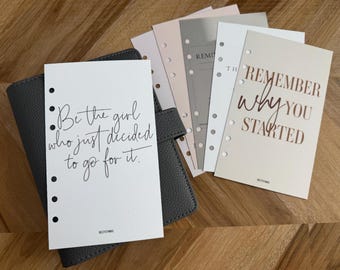 Be the girl
who just decided
to go for it.
REM
TH
REMEMBER
why YOU
STARTED